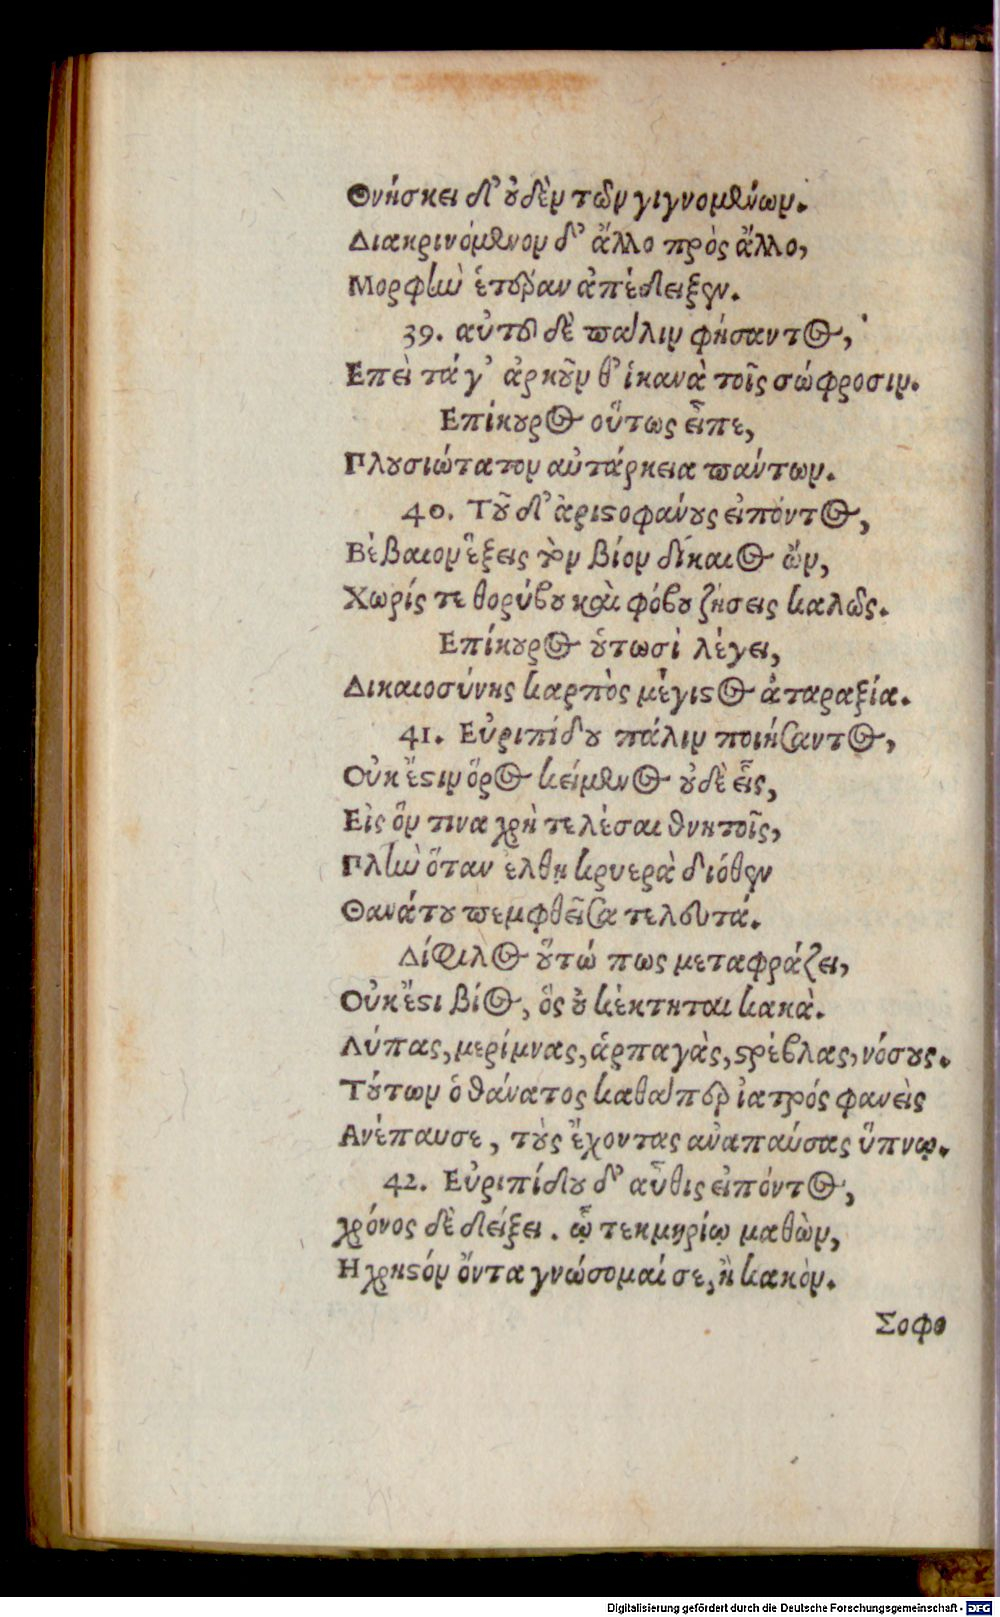 Θνήσκει δ' οὐδὲν τῶν γιγνομένων.
Διακρινόμενον δ' ἄλλο πρὸς ἄλλο,
Μορφὴν ἑτέραν ἀπέδειξεν.
39. αὐτοῦ δὲ πάλιν φήσαντος,
Επεὶ τά γ' ἀρκοῦν θ' ἱκανὰ τοῖς σώφροσιν.
Επίκουρος οὕτως εἶπε,
Πλουσιώτατον αὐτάρκεια πάντων.
40. Τοῦ δ' ἀριστοφάνους εἰπόντος,
Βέβαιον ἕξεις τὸν βίον δίκαιος ὤν,
Χωρίς τε θορύβου καὶ φόβου ζήσεις καλῶς.
Επίκουρος οὑτωσὶ λέγει,
Δικαιοσύνης καρπὸς μέγιστος ἀταραξία.
41. Εὐριπίδου πάλιν ποιήσαντος,
Οὐκ ἔστιν ὅρος κείμενος οὐδὲ εἷς,
Εἰς ὅν τινα χρὴ τελέσαι θνητοῖς,
Πλὴν ὅταν ἐλθῃ κρυερὰ διόθεν
Θανάτου πεμφθεῖσα τελευτά.
Δίφιλος οὕτώ πως μεταφράζει,
Οὐκ ἔστι βίος, ὅς οὐ κέκτηται κακὰ.
Λύπας, μερίμνας, ἁρπαγὰς, στρέβλας, νόσους.
Τούτων ὁ θάνατος καθάπερ ἰατρός φανεὶς
Ανέπαυσε, τοὺς ἔχοντας ἀναπαύσας ὕπνῳ.
42. Εὐριπίδου δ' αὖθις εἰπόντος,
χρόνος δὲ δείξει. ᾧ τεκμηρίῳ μαθὼν,
Η χρηστόν ὄντα γνώσομαί σε, ἢ κακὸν.
Σοφο
Digitalisierung gefördert durch die Deutsche Forschungsgemeinschaft - DFG